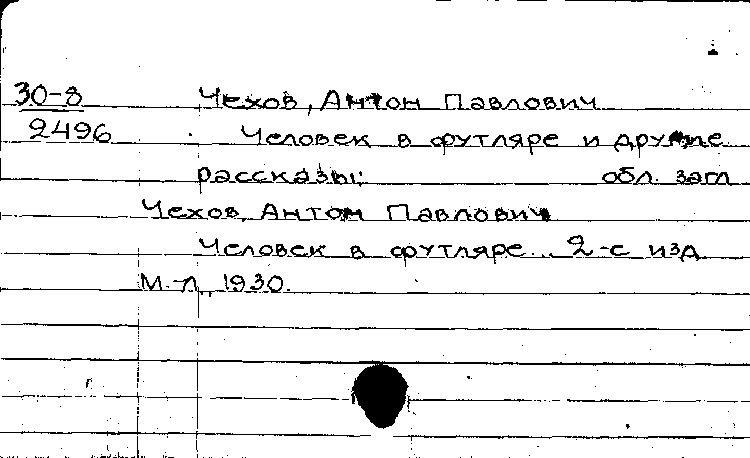 30-8 Чехов, Антон Павлович
2496 Человек в футляре и другие
рассказы: обл. загл
Чехов, Антон Павлович
Человек в футляре... 2-е изд
М.-Л., 1930.